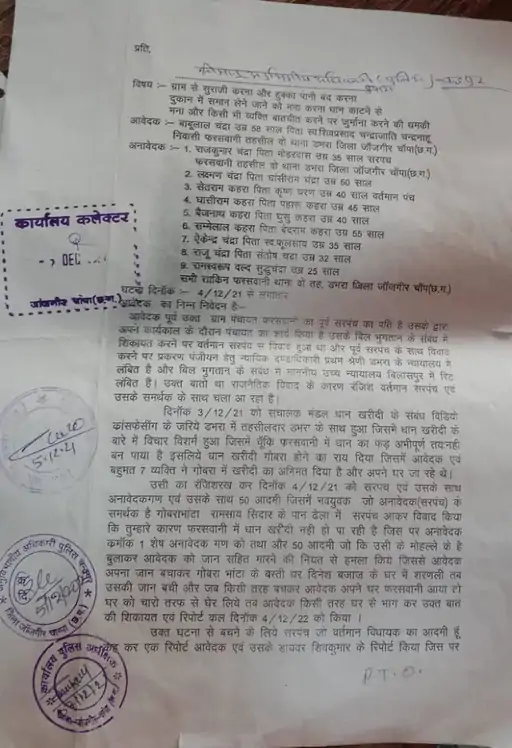 प्रति,
विषय :- ग्राम से सुराजी करना और हुक्का पानी बंद करना
दुकान में समान लेने जाने को मना करना धान काटने से
मना और किसी भी व्यक्ति बातचीत करने पर जुर्माना करने की धमकी
आवेदक :- बाबूलाल चंद्रा उम्र 58 साल पिता स्व.शिवप्रसाद चन्द्राजाति चन्द्रनाहू
निवासी फरसवानी तहसील वो थाना डमरा जिला जॉंजगीर चॉंपा(छ.ग.)
अनावेदक :- 1. राजकुमार चंद्रा पिता उम्र 35 साल सरपंच
फरसवानी तहसील वो थाना डमरा जिला जॉंजगीर चॉंपा(छ.ग.)
2. लक्ष्मण चंद्रा पिता घांसीराम चंद्रा उम्र 50 साल
3. सेतराम कहरा पिता कृष्ण चरण उम्र 40 साल वर्तमान पंच
4. घासीराम कहरा पिता पहारू कहरा उम्र 45 साल
5. बैजनाथ कहरा पिता घुसु कहरा उम्र 40 साल
6. सम्मेलाल कहरा पिता बेदराम कहरा उम्र 55 साल
7. ऐकेन्द्र चंद्रा पिता स्व.फूलसाय उम्र 35 साल
8. राजू चंद्रा पिता संतोष चद्रा उम्र 32 साल
9. रामस्वरूप वल्द सुद्धुचंद्रा उम्र 25 साल
सभी साकिन फरसवानी थाना वो तह. डमरा जिला जॉंजगीर चॉंप(छ.ग.)
घटना दिनॉंक :- 4/12/21 से लगातार
आवेदक का निम्न निवेदन है:-
आवेदक पूर्व उक्त ग्राम पंचायत फरसवानी का पूर्व सरपंच का पति है उसके द्वारा
अपने कार्यकाल के दौरान पंचायत का कार्य किया है उसके बिल भुगतान के संबंध में
शिकायत करने पर वर्तमान सरपंच से विवाद हुआ था और पूर्व सरपंच के साथ विवाद
करने पर प्रकरण पंजीयन हेतु न्यायिक दण्डाधिकारी प्रथम श्रेणी डमरा के न्यायालय में
लंबित है और बिल भुगतान के संबंध में माननीय उच्च न्यायालय बिलासपुर में रिट
लंबित है। उक्त बातों या राजनैतिक विवाद के कारण रंजिश वर्तमान सरपंच एवं
उसके समर्थक के साथ चला आ रहा है।
दिनॉंक 3/12/21 को संचालक मंडल धान खरीदी के संबंध विडियो
कांसफेसींग के जरिये डमरा में तहसीलदार डमरा के साथ हुआ जिसमें धान खरीदी के
बारे में विचार विर्मश हुआ जिसमें चूँकि फरसवानी में धान का फड़ अभीपूर्ण तयनही
बन पाया है इसलिये धान खरीदी गोबरा होने का राय दिया जिसमें आवेदक एवं
बहुमत 7 व्यक्ति ने गोबरा में खरीदी का अभिमत दिया है और अपने घर जा रहे थे।
उसी का रंजिशरख कर दिनॉंक 4/12/21 को सरपंच एवं उसके साथ
अनावेदकगण एवं उसके साथ 50 आदमी जिसमें नवयुवक जो अनावेदक(सरपंच) के
समर्थक है गोबराभांटा रामसाय सिदार के पान ठेला में सरपंच आकर विवाद किया
कि तुम्हारे कारण फरसवानी में धान खरीदी नही हो पा रही है जिस पर अनावेदक
कमॉंक 1 शेष अनावेदक गण को तथा और 50 आदमी जो कि उसी के मोहल्ले के है
बुलाकर आवेदक को जान सहित मारने की नियत से हमला किया जिससे आवेदक
अपना जान बचाकर गोबरा भांटा के बस्ती घर दिनेश बजाज के घर में शरणली तब
उसकी जान बची और जब किसी तरह बचकर आवेदक अपने घर फरसवानी आया तो
घर को चारो तरफ से घेर लिये तब आवेदक किसी तरह घर से भाग कर उक्त बात
की शिकायत एवं रिपोर्ट कल दिनॉंक 4/12/22 को किया ।
उक्त घटना से बचने के लिये सरपंच जो वर्तमान विधायक का आदमी हूँ
कह कर एक रिपोर्ट आवेदक एवं उसके ड्राइवर शिवकुमार के रिपोर्ट किया जिस पर
P.T.O.
कार्यालय कलेक्टर
DEC
जांजगीर चांपा(छ.ग.)
5-12-21